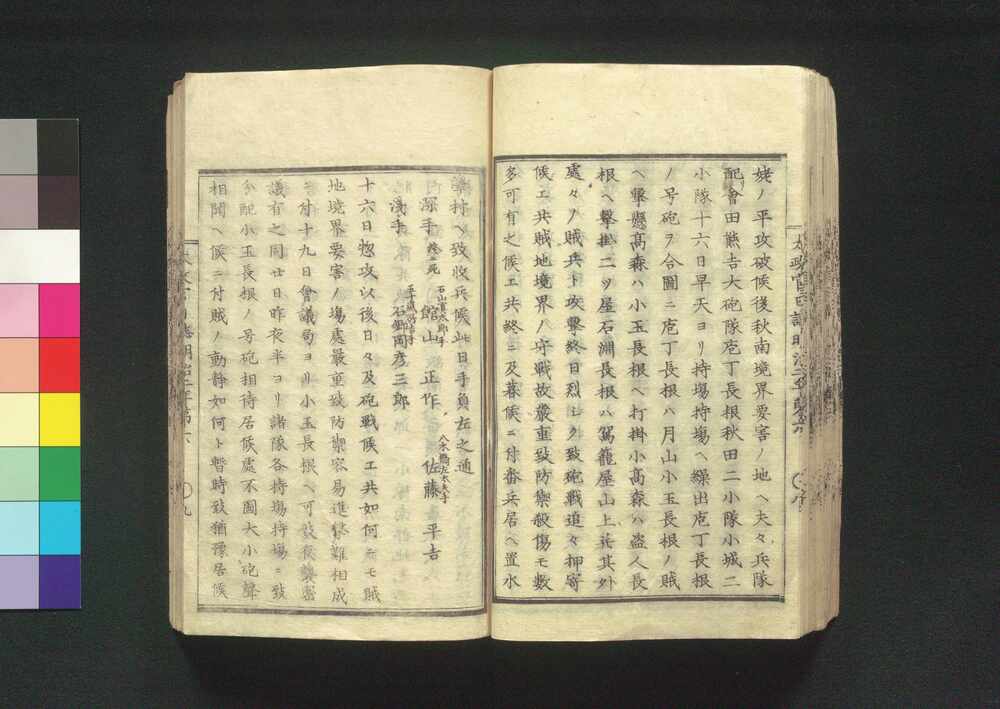 姥ノ平攻破候後秋南境界要害ノ地ヘ夫々兵隊
配會田熊吉大砲隊庖丁長根秋田二小隊小城二
小隊十六日早天ヨリ持場持場ヘ繰出庖丁長根
ノ号砲ヲ合圖ニ庖丁長根ハ月山小玉長根ノ賊
ヘ撃懸高森ハ小玉長根ヘ打掛小高森ハ盗人長
根ヘ撃掛二ツ屋石淵長根ハ駕籠屋山上並其外
處々ノ賊兵ト攻撃終日烈シク致砲戰追々押寄
候エ共賊地境界ノ守戰故嚴重致防禦殺傷モ數
多可有之候エ共終ニ及暮候ニ付番兵居ヘ置水
澤村ヘ致收兵候此日手負左之通
深手後死 石山直太郎手 館山正作 八木橋左木夫手 佐藤平吉
淺手 石郷岡彦三郎
十六日惣攻以後日々及砲戰候エ共如何ニモ賊
地境界要害ノ塲處嚴重致防禦容易進撃難相成
ニ付十九日會議局ヨリ小玉長根ヘ可致夜襲密
議有之同廿日昨夜半ヨリ諸隊各持塲持塲ニ致
分配小玉長根ノ号砲相待居候處不圖大小砲聲
相聞ヘ候ニ付賊ノ動静如何ト暫時致猶豫居候